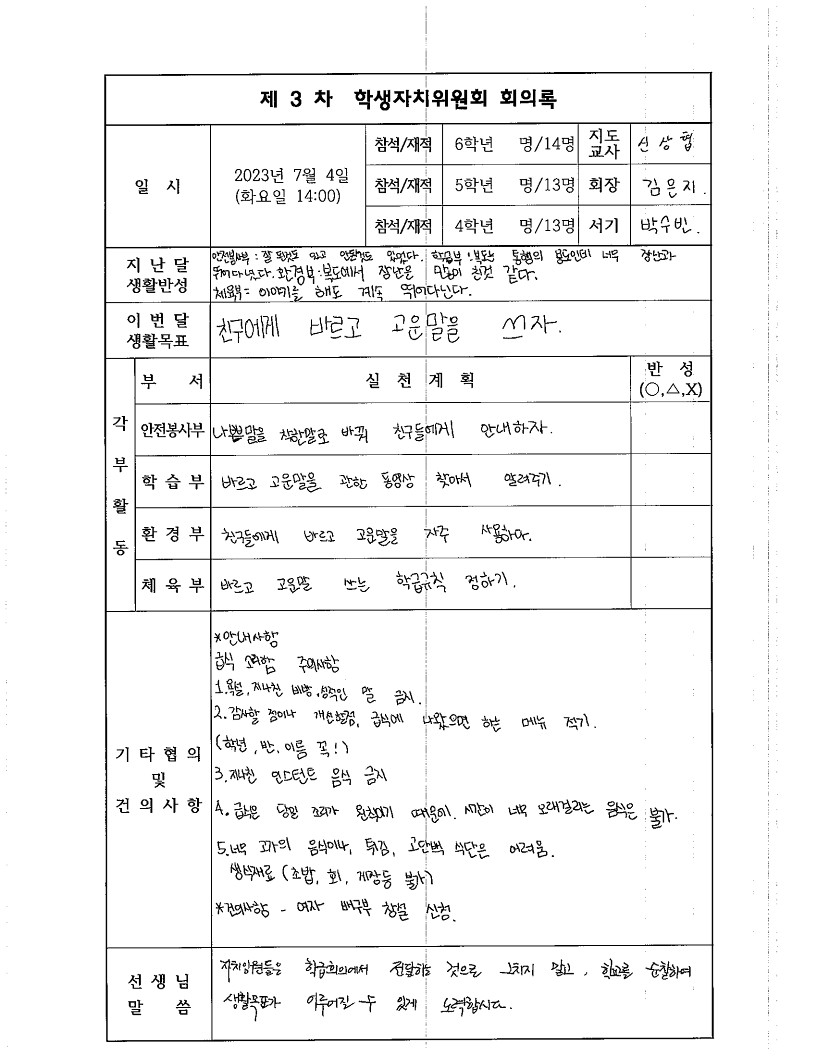 제 3 차 학생자치위원회 회의록
일 시
2023년 7월 4일
(화요일 14:00)
참석/재적 6학년 명/14명 지도교사 신상협
참석/재적 5학년 명/13명 회장 김은지.
참석/재적 4학년 명/13명 서기 박수빈.
지난달 생활반성
안전봉사부 : 잘 된것도 있고 안된것도 있었다. 학습부 : 복도는 통행의 용도인데 너무 장난과
뛰어다녔다. 환경부 : 복도에서 장난을 많이 친것 같다.
체육부 : 이야기를 해도 계속 뛰어다닌다.
이번달 생활목표
친구에게 바르고 고운말을 쓰자.
각 부 활 동
부 서 실 천 계 획 반 성 (○,△,X)
안전봉사부 나쁜말을 착한말로 바꿔 친구들에게 안내하자.
학 습 부 바르고 고운말을 관한 동영상 찾아서 알려주기.
환 경 부 친구들에게 바르고 고운말을 자주 사용하자.
체 육 부 바르고 고운말 쓰는 학급규칙 정하기.
기 타 협 의 및 건 의 사 항
*안내사항
급식 소리함 주의사항
1. 욕설, 지나친 비방, 성적인 말 금지.
2. 감사할 점이나 개선할점, 급식에 나왔으면 하는 메뉴 적기.
(학년, 반, 이름 꼭!)
3. 지나친 인스턴트 음식 금지
4. 급식은 당일 조리가 원칙이기 때문에. 시간이 너무 오래걸리는 음식은 불가.
5. 너무 고가의 음식이나, 튀김, 고단백 식단은 어려움.
생식재료 (초밥, 회, 게장등 불가)
*건의사항 - 여자 배구부 창설 신청.
선 생 님 말 씀
자치위원들은 학급회의에서 전달하는 것으로 그치지 말고, 학교를 순찰하여
생활목표가 이루어질 수 있게 노력합시다.